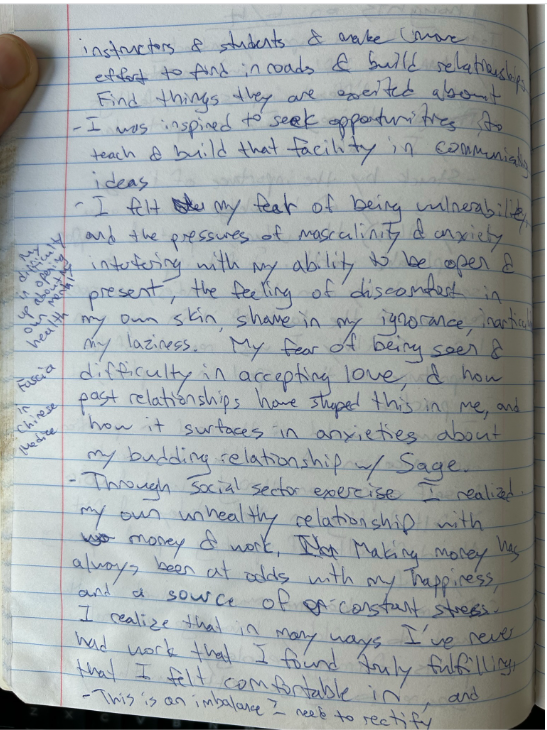 instructors & students & make more
effort to find inroads & build relationships.
Find things they are excited about
- I was inspired to seek opportunities to
teach & build that facility in communicating
ideas
- I felt my fear of being vulnerability,
and the pressures of masculinity & anxiety
intufering with my ability to be open &
present, the feeling of discomfort in
my own skin, shame in my ignorance,
my laziness. My fear of being seen &
difficulty in accepting love, & how
past relationships have shaped this in me, and
how it surfaces in anxieties about
my budding relationship w/ Sage.
- Through social sector exercise I realized
my own unhealthy relationship with
money & work. Making money has
always been at odds with my happiness,
and a source of constant stress.
I realize that in many ways I've never
had work that I found truly fulfilling,
that I felt comfortable in, and
- This is an imbalance I need to rectify
My
difficulty
in opening
up about my
own mental
health
Fascia
in
Chinese